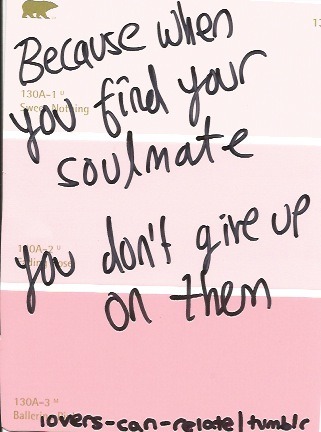 Because when
130A-1 U
Sweet Nothing
you find your
soulmate
130A-2 U
you don't give up
on them
130A-3 M
Ballerina
lovers-can-relate|tumblr